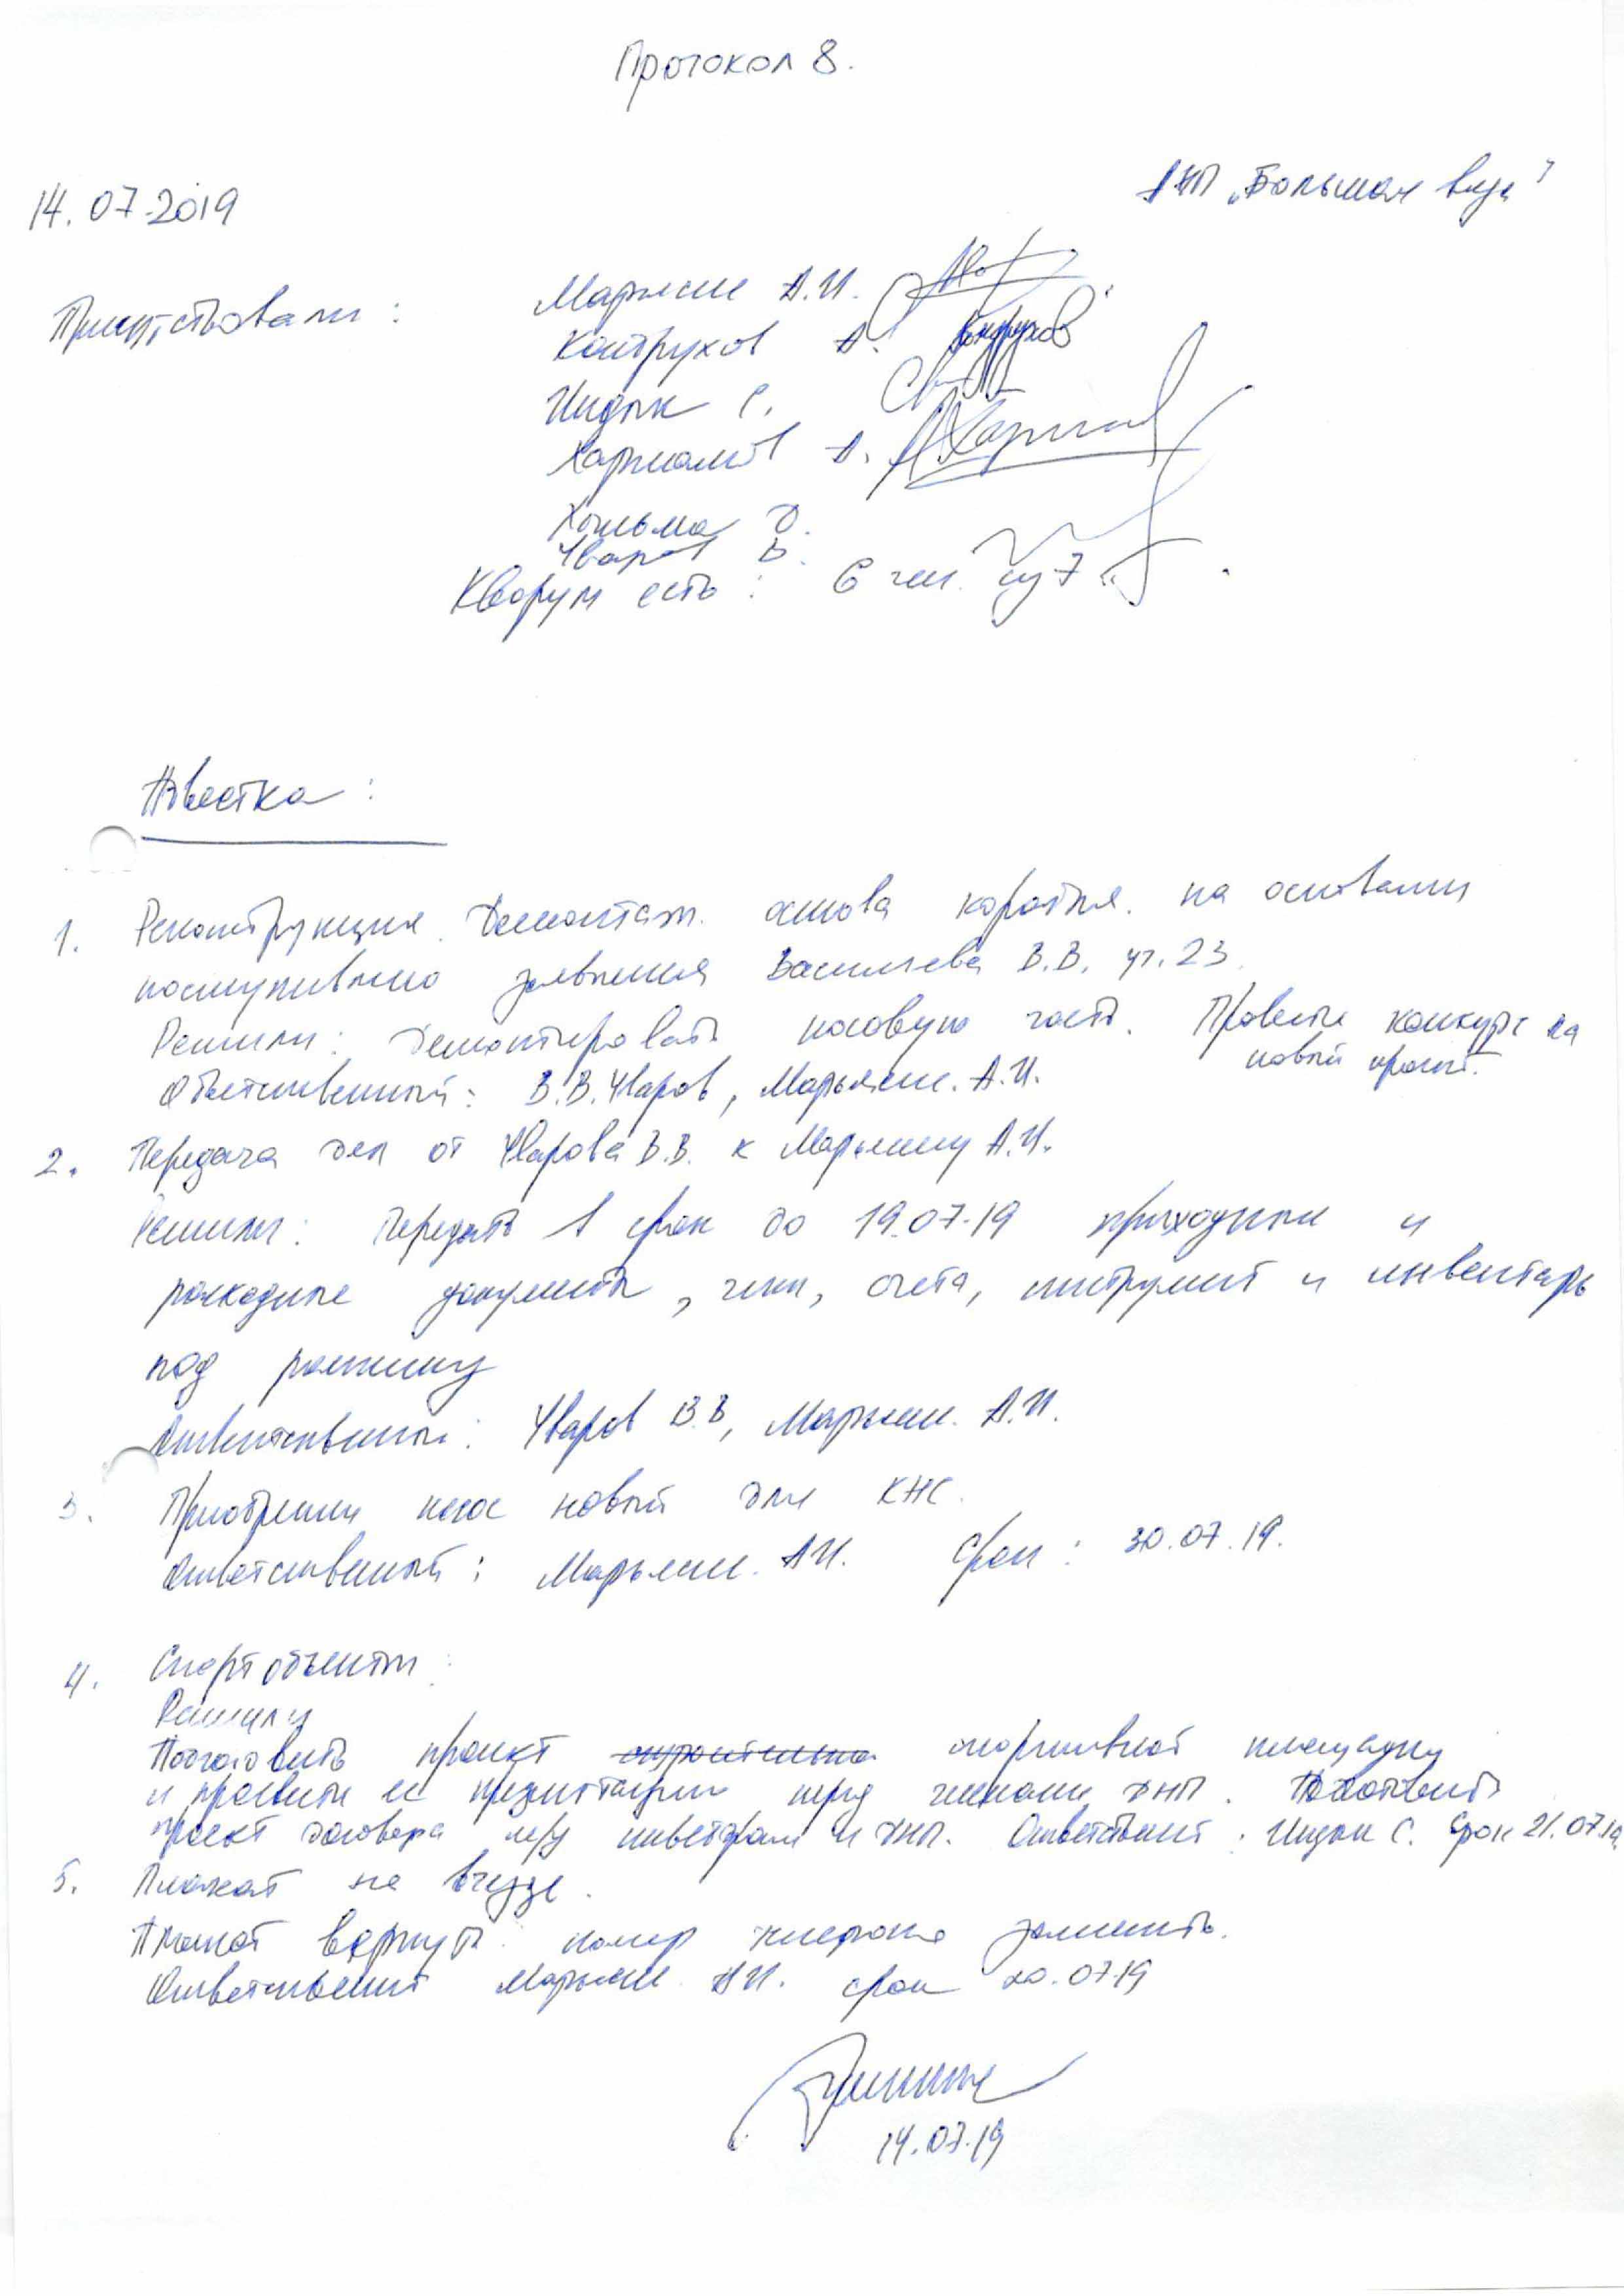 Протокол 8.
ДНП „Большая вода"
14.07.2019
Присутствовали:
Марьясин А.И.
Кондрухов А.
Индык С.
Харламов А.
Д.
Уваров В.
Кворум есть: 6 чел. из 7
Повестка:
1. Реконструкция. Демонтаж. остова корабля. на основании
поступившего заявления Васильева В.В. уч. 23.
Решили: Демонтировать носовую часть. Провести конкурс на
новый проект.
Ответственный: В.В. Уваров, Марьясин. А.И.
2. Передача дел от Уварова В.В. к Марьясину А.И.
Решили: Передать в срок до 19.07.19 приходные и
расходные документы, чеки, счета, инструмент и инвентарь
под роспись
Ответственный: Уваров В.В, Марьясин. А.И.
3. Приобретении насос новый для КНС.
Ответственный: Марьясин. А.И. Срок: 30.07.19.
4. Спортобъекты:
Решили
Подготовить проект спортивной площадки
и провести ее презентацию перед членами ДНП. Подготовить
проект договора м/у инвестором и ДНП. Ответственный: Индык С. Срок 21.07.19
5. Плакат на въезде.
Плакат вернуть номер телефона заменить.
Ответственный Марьясин А.И. срок 20.07.19
14.07.19